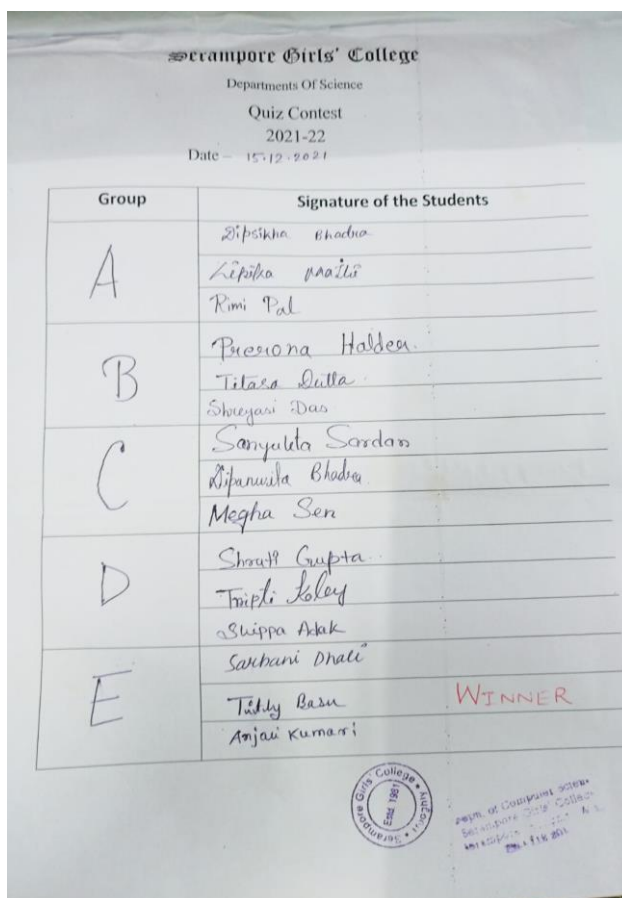 Serampore Girls' College
Departments Of Science
Quiz Contest
2021-22
Date – 15.12.2021
Group Signature of the Students
A
Dipsikha Bhadra
Lipika Maiti
Rimi Pal
B
Prerona Halder.
Titasa Dutta.
Shreyasi Das
C
Sanyukta Sardar
Dipanwita Bhadra
Megha Sen
D
Shruti Gupta
Tripti Koley
Shippa Adak
E
Sarbani Dhali
Basu WINNER
Anjali Kumari
Serampore Girls' College • Estd. 1981
Deptt. of Computer Scien
Serampore Girls' College